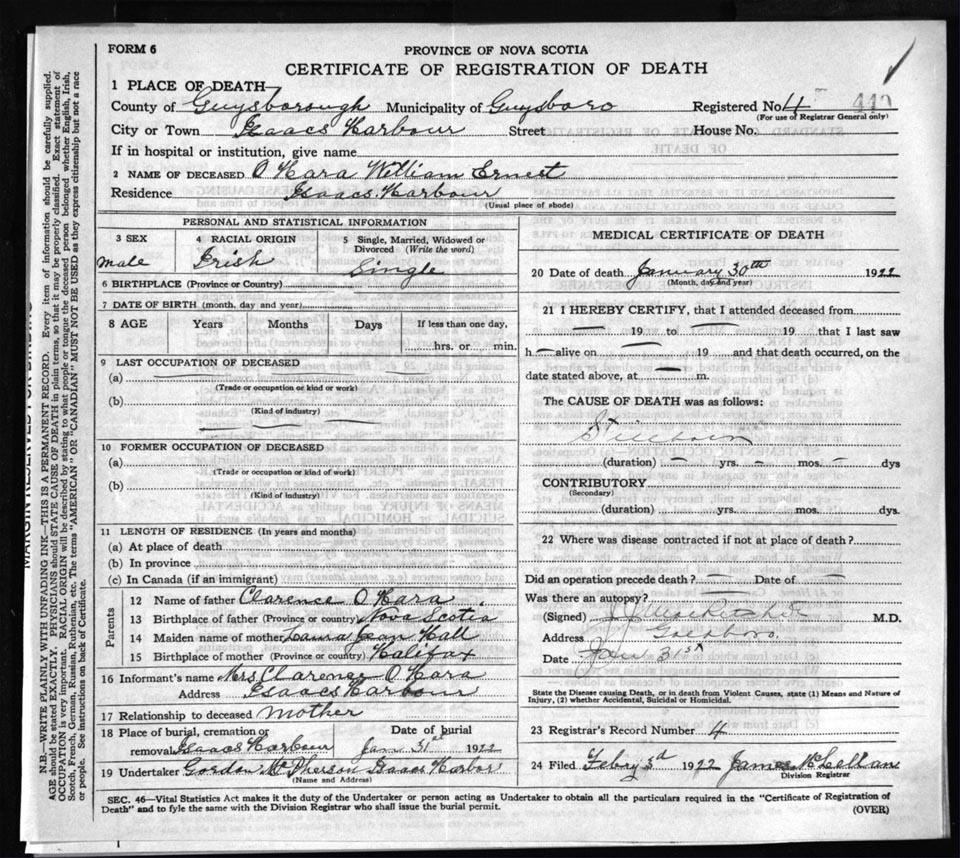 FORM 6
PROVINCE OF NOVA SCOTIA
CERTIFICATE OF REGISTRATION OF DEATH
1 PLACE OF DEATH
County of Guysborough Municipality of Guysboro Registered No. 4 440
(For use of Registrar General only)
City or Town Isaacs Harbour Street House No.
If in hospital or institution, give name
2 NAME OF DECEASED O Hara William Ernest
Residence Isaacs Harbour
(Usual place of abode)
PERSONAL AND STATISTICAL INFORMATION
3 SEX 4 RACIAL ORIGIN 5 Single, Married, Widowed or Divorced (Write the word)
Male Irish Single
6 BIRTHPLACE (Province or Country)
7 DATE OF BIRTH (month, day and year)
8 AGE Years Months Days If less than one day,
hrs. or min.
9 LAST OCCUPATION OF DECEASED
(a)
(Trade or occupation or kind or work)
(b)
(Kind of industry)
10 FORMER OCCUPATION OF DECEASED
(a)
(Trade or occupation or kind or work)
(b)
(Kind of industry)
11 LENGTH OF RESIDENCE (In years and months)
(a) At place of death
(b) In province
(c) In Canada (if an immigrant)
Parents
12 Name of father Clarence O Hara
13 Birthplace of father (Province or country) Nova Scotia
14 Maiden name of mother Laura Jean Hall
15 Birthplace of mother (Province or country) Halifax
16 Informant's name Mrs Clarence O Hara
Address Isaacs Harbour
17 Relationship to deceased Mother
18 Place of burial, cremation or removal Isaacs Harbour Date of burial Jan 31st 1922
19 Undertaker Gordon McPherson Isaacs Harbor
(Name and Address)
MEDICAL CERTIFICATE OF DEATH
20 Date of death January 30th 1922
(Month, day and year)
21 I HEREBY CERTIFY, that I attended deceased from
19 to 19 that I last saw
h alive on 19 and that death occurred, on the
date stated above, at m.
The CAUSE OF DEATH was as follows:
Stillborn
(duration) yrs. mos. dys
CONTRIBUTORY
(Secondary)
(duration) yrs. mos. dys.
22 Where was disease contracted if not at place of death?
Did an operation precede death? Date of
Was there an autopsy?
(Signed) M.D.
Address Goldboro
Date Jan 31st
State the Disease causing Death, or in death from Violent Causes, state (1) Means and Nature of
Injury, (2) whether Accidental, Suicidal or Homicidal.
23 Registrar's Record Number 4
24 Filed Febry 3d 1922 James McLellan
Division Registrar
SEC. 46—Vital Statistics Act makes it the duty of the Undertaker or person acting as Undertaker to obtain all the particulars required in the "Certificate of Registration of
Death" and to fyle the same with the Division Registrar who shall issue the burial permit.
(OVER)
N.B.—WRITE PLAINLY WITH UNFADING INK—THIS IS A PERMANENT RECORD. Every item of information should be carefully supplied.
AGE should be stated EXACTLY. PHYSICIANS should STATE CAUSE OF DEATH in plain terms, so that it may be properly classified. Exact statement of
OCCUPATION is very important. RACIAL ORIGIN will be described by stating to what people or tongue the deceased person belonged whether English, Irish,
Scotch, French, German, Russian, Ruthenian, etc. The terms "AMERICAN" OR "CANADIAN" MUST NOT BE USED as they express citizenship but not a race
or people. See instructions on back of Certificate.